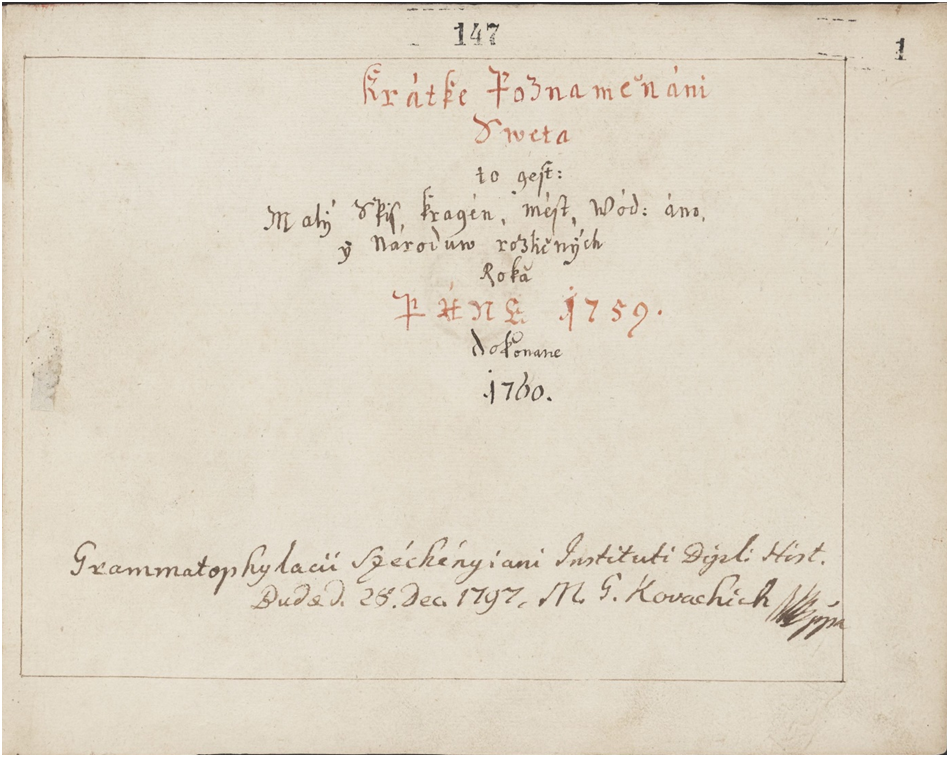 147
1
Krátke Poznameňáni
Sweta
to gest:
Malý Spis kragén, mést, Wód: áno,
ÿ Národuw rozličných
Roka
PÁNE 1759.
dokonane
1760.
Grammatophylacii Széchényiani Instituti Dipli Hist.
Budæ d. 28. Dec. 1797. M. G. Kovachich